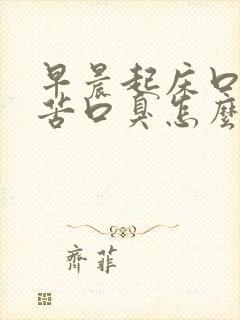 早晨起床口
苦口臭怎麼
齊菲